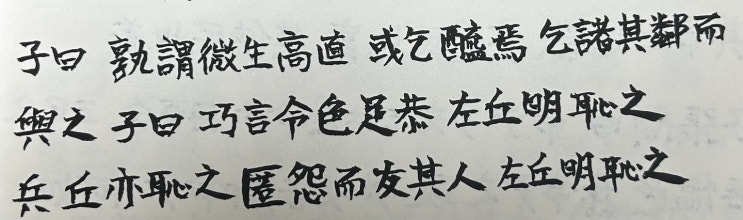 子曰 孰謂微生高直 或乞醯焉 乞諸其鄰而
與之 子曰 巧言令色足恭 左丘明恥之
兵丘亦恥之 匿怨而友其人 左丘明恥之